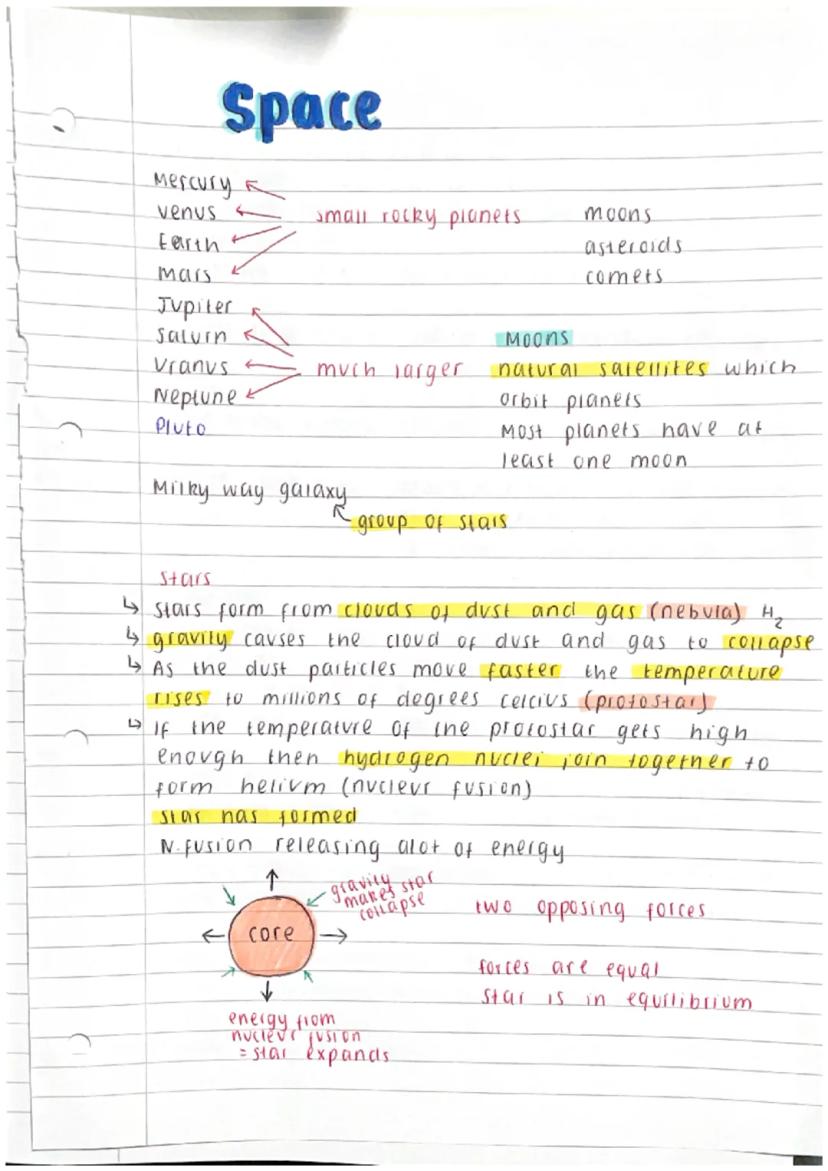 Space
Mercury
Venus
Earth
Mars
small rocky planets
moons
asteroids
comets
Jupiter
Saturn
Uranus
Neptune
much larger
Pluto
Moons
natural satellites which
orbit planets
Most planets have at
least one moon
Milky way galaxy
group of stars
Stars
↳ Stars form from clouds of dust and gas (nebula) H₂
↳ gravity causes the cloud of dust and gas to collapse
↳ As the dust particles move faster the temperature
rises to millions of degrees celcius (protostar)
↳ If the temperature of the protostar gets high
enough then hydrogen nuclei join together to
form helium (nucleur fusion)
star has formed
N.fusion releasing alot of energy
gravity
makes star
collapse
core
energy from
nucleur fusion
= star expands
two opposing forces
forces are equal
star is in equilibrium